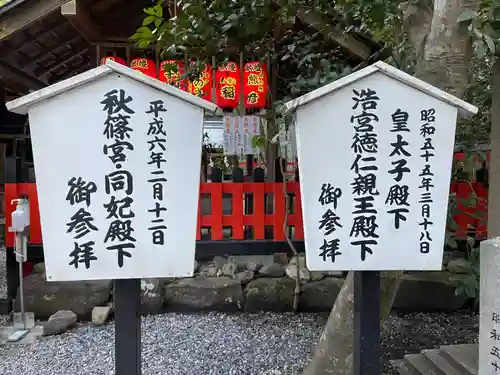 平成六年二月十二日
秋篠宮同妃殿下
御参拝
昭和五十五年三月十八日
皇太子殿下
浩宮徳仁親王殿下
御参拝